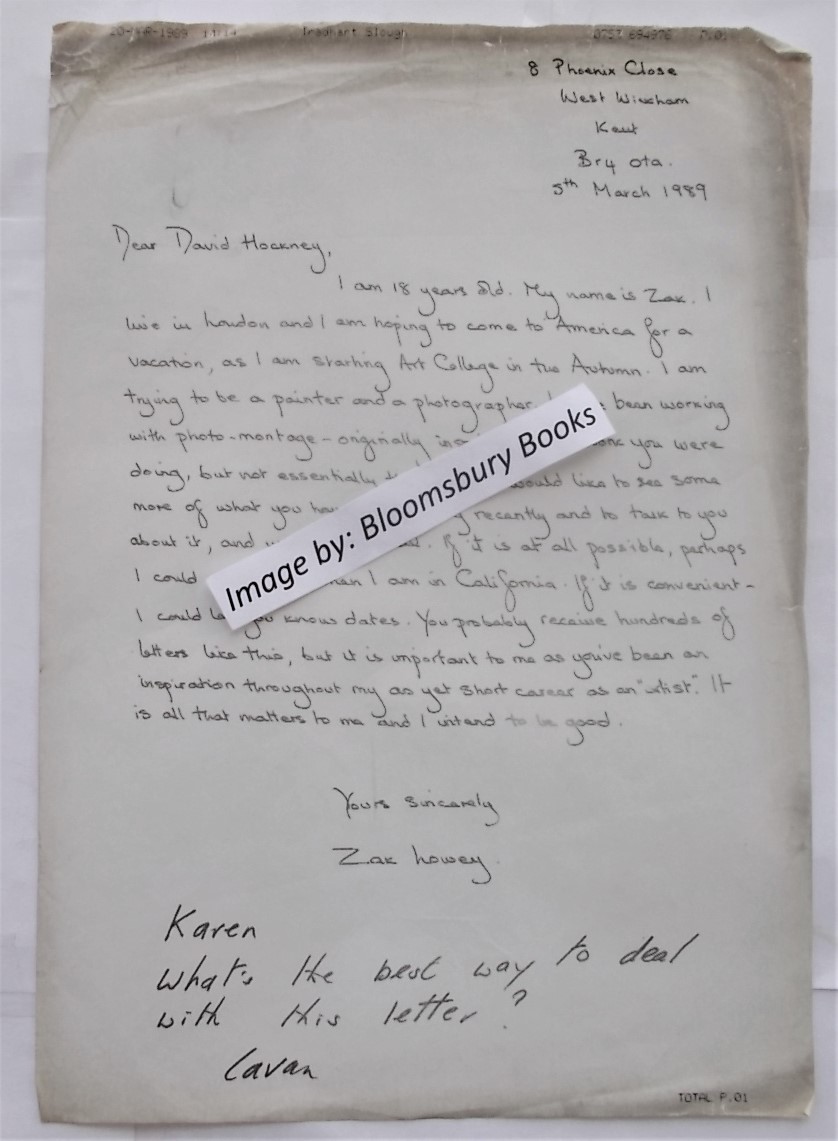 1989 Tradhart Slough P.01
8 Phoenix Close
West Wickham
Kent
Br4 0ta.
5th March 1989
Dear David Hockney,
I am 18 years old. My name is Zak. I
live in London and I am hoping to come to America for a
vacation, as I am starting Art College in the Autumn. I am
trying to be a painter and a photographer. been working
with photo-montage - originally you were
doing, but not essentially would like to see some
more of what you recently and to talk to you
about it, and If it is at all possible, perhaps
I could when I am in California. If it is convenient -
I could let you know dates. You probably receive hundreds of
letters like this, but it is important to me as you've been an
inspiration throughout my as yet short career as an "artist". It
is all that matters to me and I intend to be good.
Yours sincerely
Zak
Karen
what's the best way to deal
with this letter?
Cavan
TOTAL P.01
Image by: Bloomsbury Books